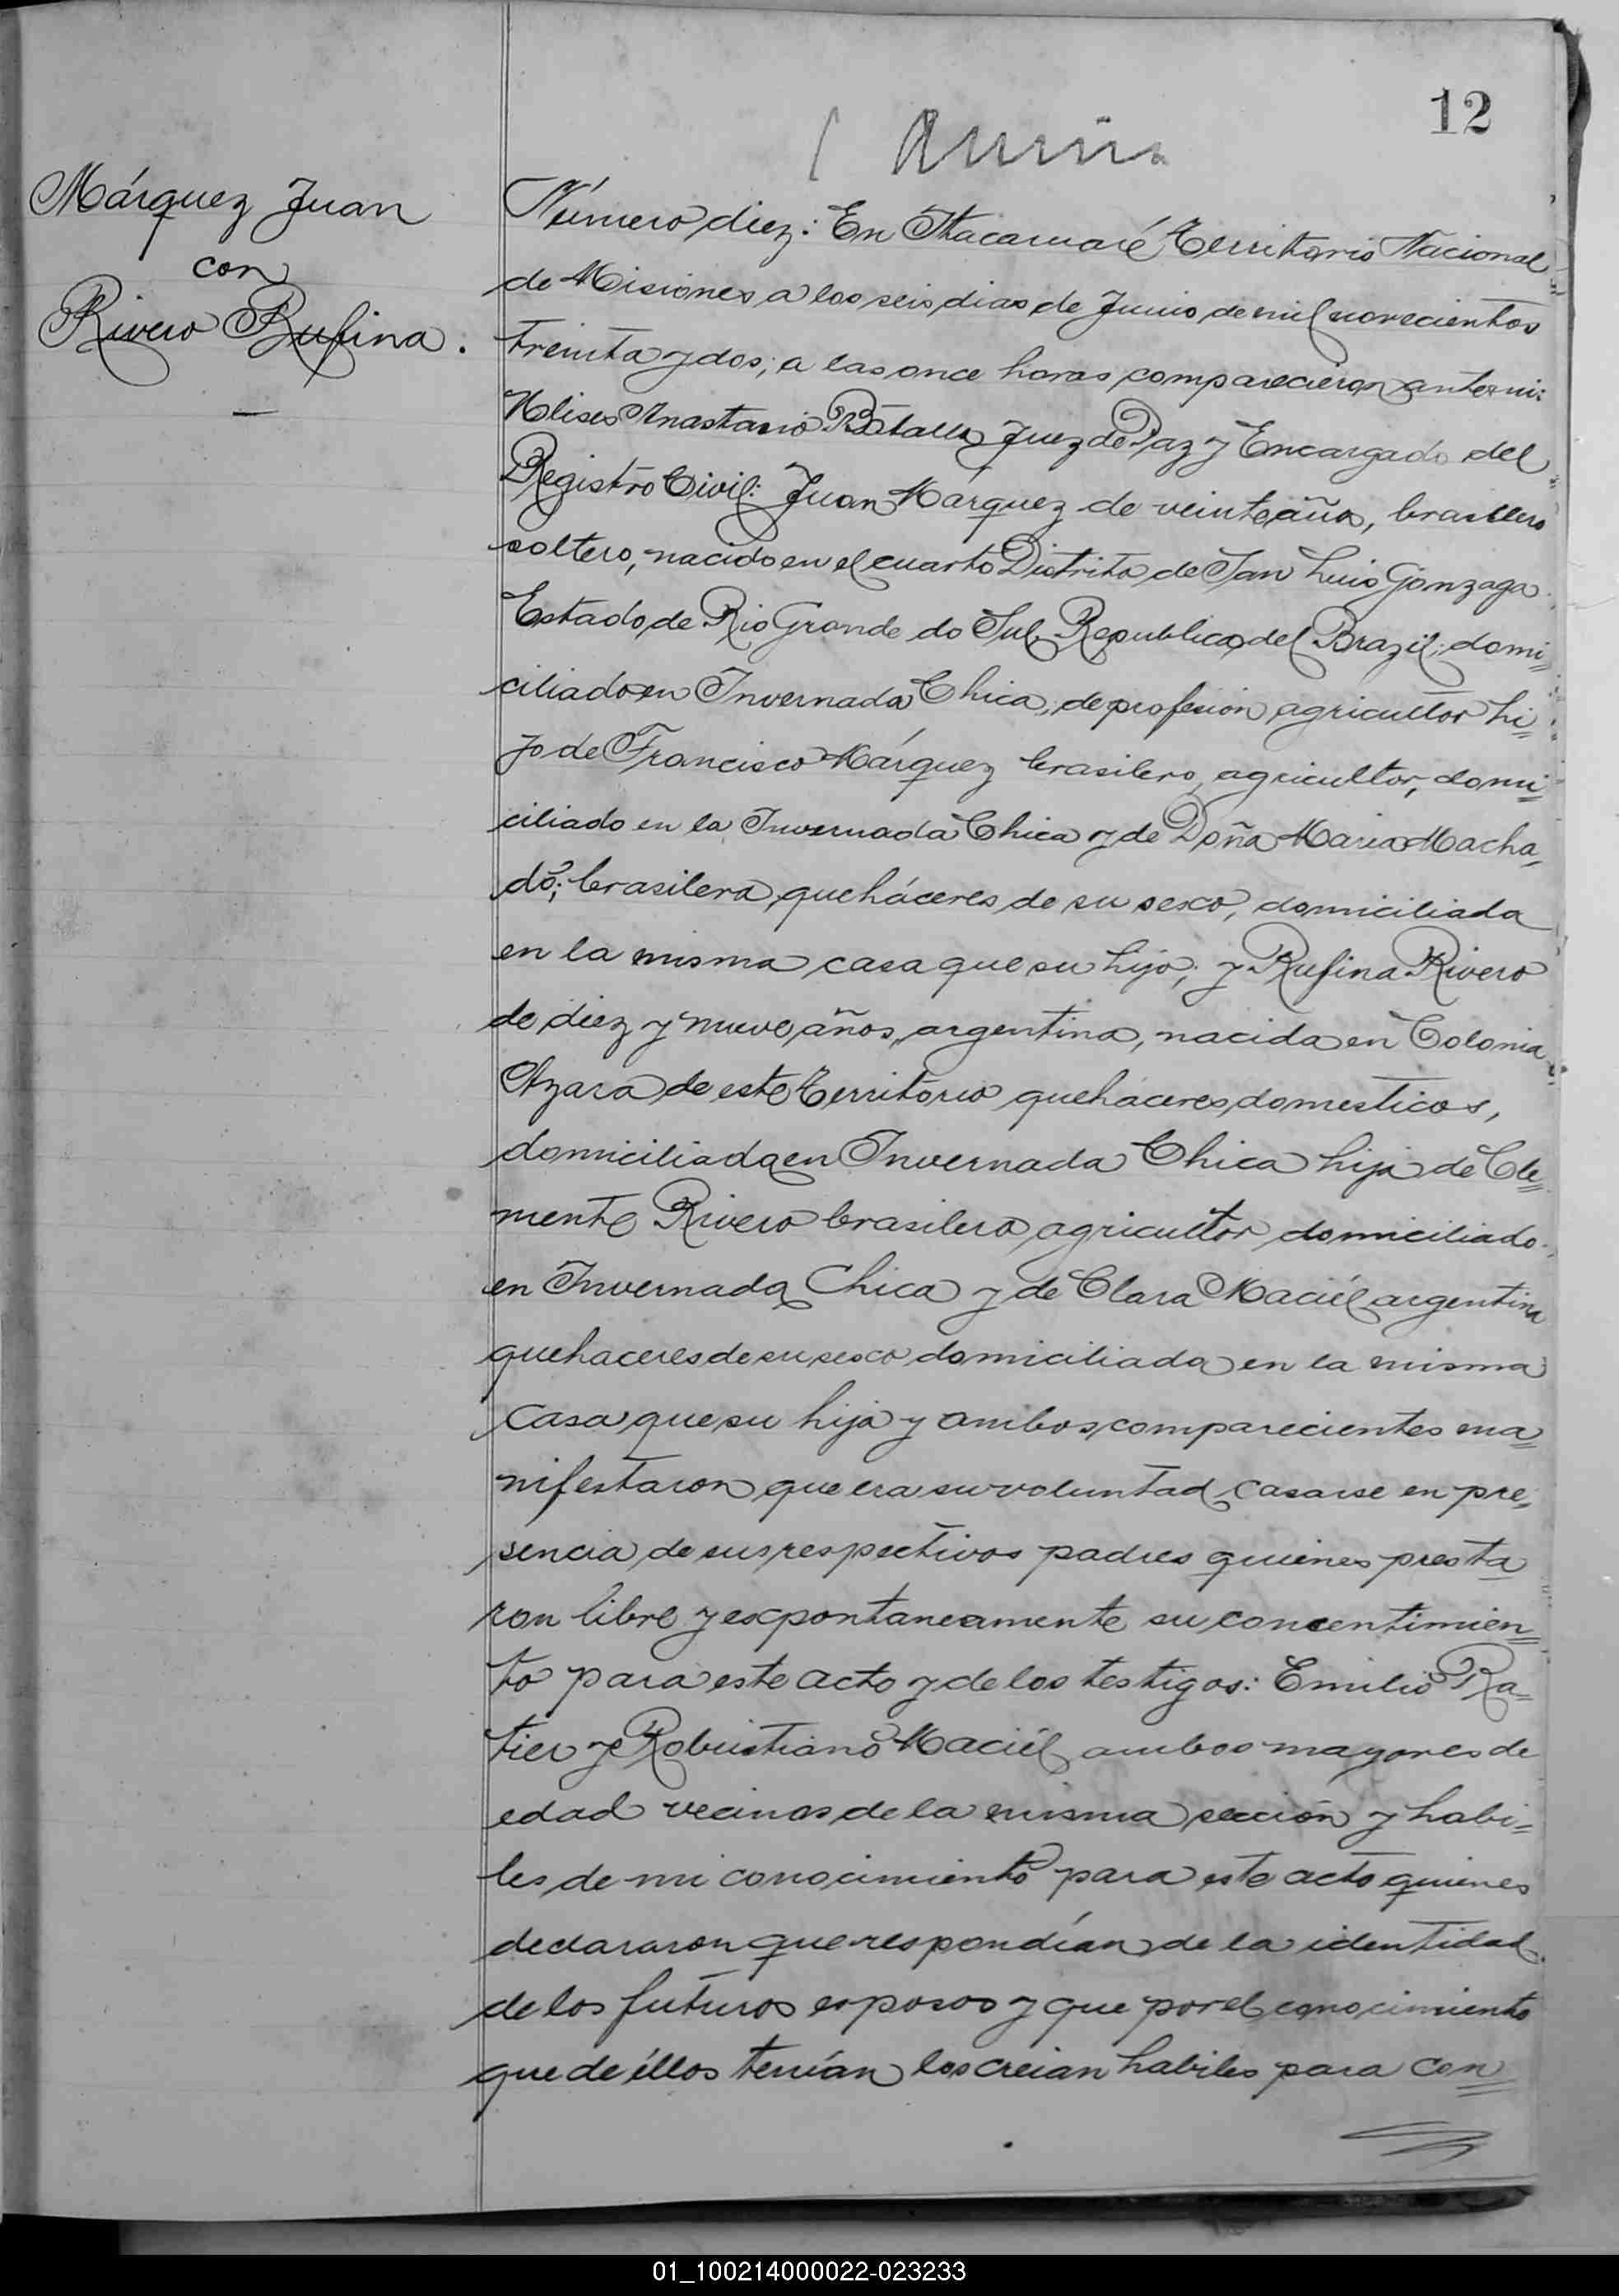 12
Márquez Juan
con
Rivero Rufina.
Número diez: En Itacaruaré Territorio Nacional
de Misiones, a los seis dias de Junio de mil novecientos
treinta y dos; a las once horas comparecieron ante mi:
Ulises Anastasio Batalla Juez de Paz y Encargado del
Registro Civil: Juan Márquez de veinte años, brasilero
soltero, nacido en el cuarto Distrito de San Luis Gonzaga
Estado de Rio Grande do Sul Republica del Brazil; domi=
ciliado en Invernada Chica, de profesión agricultor hi=
jo de Francisco Márquez brasilero, agricultor, domi=
ciliado en la Invernada Chica y de Doña Maria Macha=
do; brasilera, queháceres de su sexo, domiciliada
en la misma casa que su hijo; y Rufina Rivero
de diez y nueve años, argentina, nacida en Colonia
Azara de este Territorio quehaceres domesticos,
domiciliada en Invernada Chica hija de Cle=
mente Rivero brasilero agricultor domiciliado
en Invernada Chica y de Clara Maciél argentina
quehaceres de su sexo domiciliada en la misma
casa que su hija y ambos comparecientes ma=
nifestaron que era su voluntad casarse en pre=
sencia de sus respectivos padres quienes presta
ron libre y expontaneamente su concentimien=
to para este acto y de los testigos: Emilio Ra=
tier y Robustiano Maciél ambos mayores de
edad vecinos de la misma sección y habi=
les de mi conocimiento para este acto quienes
declararon que respondían de la identidad
de los futuros esposos y que por el conocimiento
que de éllos tenían los creian habiles para con=
01_100214000022-023233